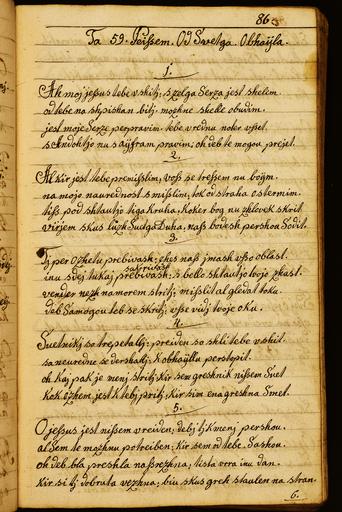 86
Ta 59. Peißem. Od Svetga Obhaÿla.
1.
Ah moj jeßus tebe vshitj, s zelga Serza jest shelim
od tebe na shpishan bitj,
jest moje Serze perpravim. tebe vredna
pravim, oh jeb te mogu prejet.
2.
Al kir jest tebe premißlim, voß se treßem nu bojm.
na mojo naurednost smißlim, tok od straha ostermim.
tiß pod shtaltjo tiga Kruha, Koker bog nu zhlovek skrit
virjem skus luzh Svdga Duha, naß bodesh pershou Sodit.
3.
Ti per Ozhetu prebivash; ekis naß jmash vße oblast.
inu svej tukaj prebivash; s belle shtaltjo tvoje zhast.
vender nezh na morem stritj; mißlit al gledat toku
deb Samogou teb se skritj; vße vidj tvoje oku.
4.
Svetnikj so trepetallj; vreiden so sklitebe vshit.
sa neuredne se dershallj; K obhaÿlla perstopit.
oh Kaj pak je menj stritj, Kir sem greshnik nißem Svet
Kok ozhem, jest K tebj pritj; Kir sim ena greshna Smet.
5.
O jeßus jest nißem vreiden, debj tj K menj pershou.
al Sem te mozhnu potreiben; Kir sem od tebe Sashou.
oh deb bla preshla naß rezhna, tista vera inu dan.
Kir si tj dobruta vezhna, biu skus greh stauten na stran.
6.